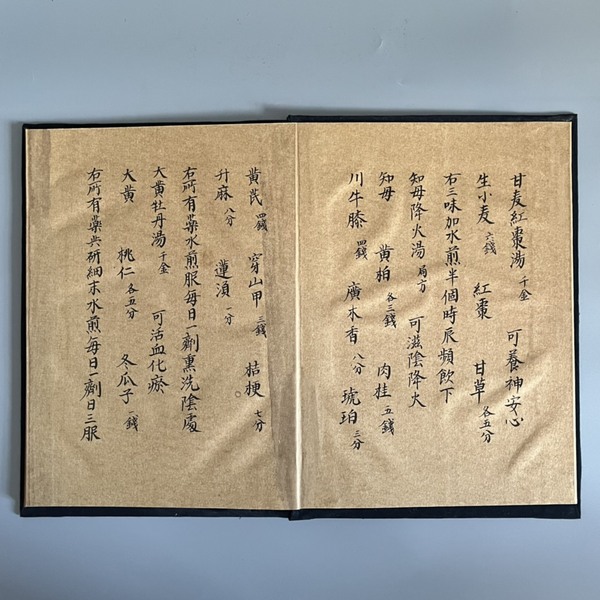 甘麦紅棗湯 千金 可養神安心
生小麦 六錢 紅棗 甘草 各五分
右三味加水煎半個時辰頻飲下
知母降火湯 局方 可滋陰降火
知母 黄柏 各三錢 肉桂 五錢
川牛膝 四錢 廣木香 八分 琥珀 三分
黄芪 四錢 穿山甲 三錢 桔梗 七分
升麻 八分 蓮湏 一分
右所有藥水煎服每日一劑熏洗陰處
大黄牡丹湯 千金 可活血化瘀
大黄 桃仁 各五分 冬瓜子 一錢
右所有藥共研細末水煎每日一劑日三服